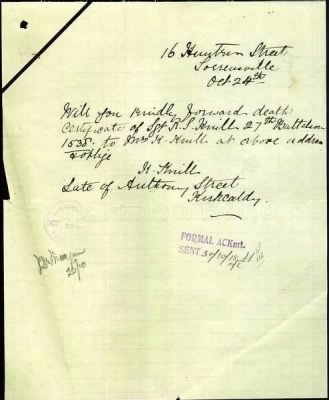 16 Huntrin Street
Torrensville
Oct 24th
Will you Kindly forward death
Certificate of Sgt R. S. Knill 27th Battalion
1535 to Mrs K. Knill at above address
& oblige
K. Knill
Late of Anthony Street
Kirkcaldy
FORMAL ACKmt.
SENT 30/10/18
25/10